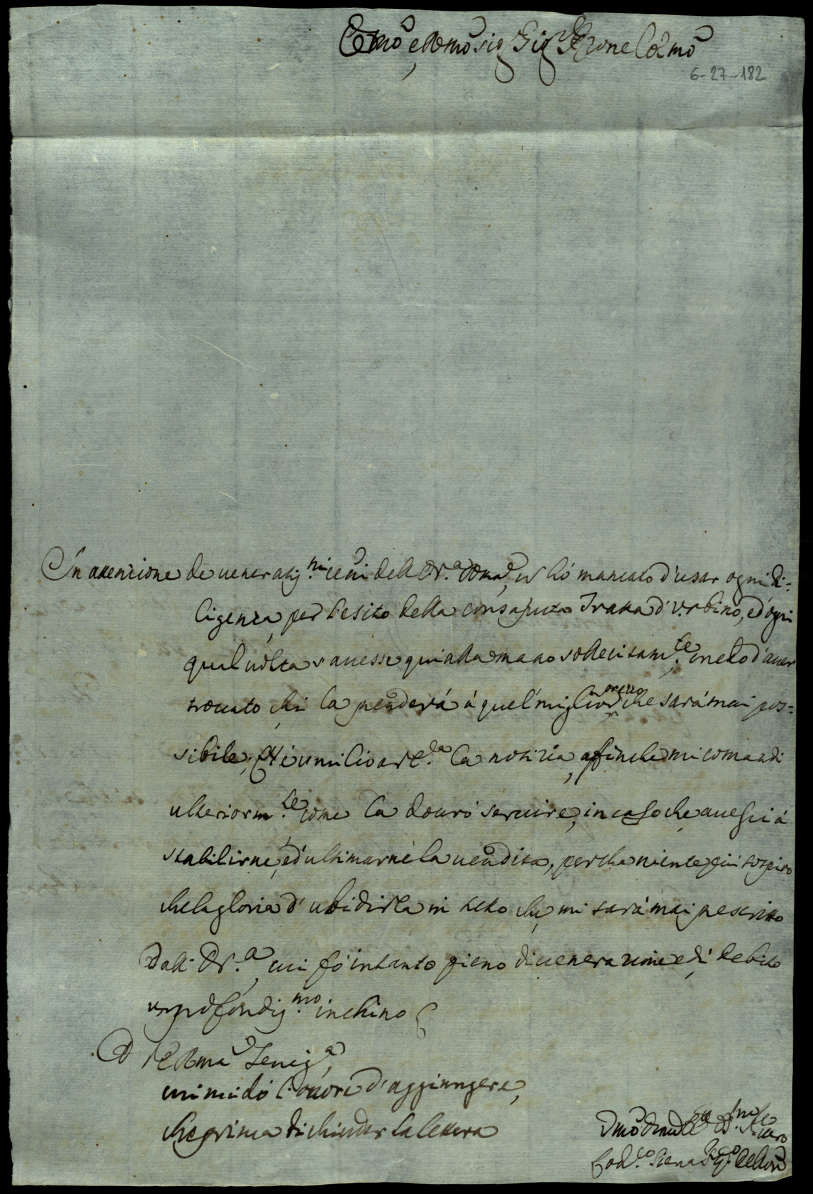 Emo e Rmo Sig Sig Prone Colmo
6-27-182
In attenzione de veneratis.mi cenni dell' Em.a V.a, nò hò mancato d'usar ogni di-
ligenza, per l'esito della consaputa Tratta d'Urbino, ed ogni
qual volta s'avesse qui alla mano sollecitam.te credo d'aver
trovato chi la prenderà à quel miglior prezzo che sarà mai pos-
sibile, e ne umilio a V.E. la notizia, affinche mi comandi
ulteriorm.te come la dovrò servire, in caso che avessi à
stabilirne, ed ultimarne la vendita, perche niente più sospiro
che la gloria d'ubidirla in tutto ciò, mi sarà mai prescritto
Dall' E.V.a, cui fò intanto pieno di venerazione, e di debito
un profondis.mo inchino
D V Em.a Senig.a
cui mi dò l'onore d'aggiungere,
che prima di chiuder la lettera